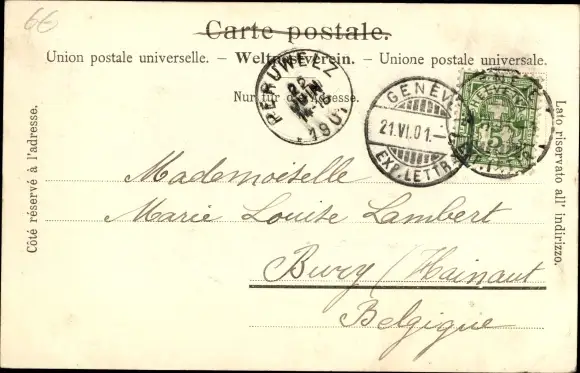 66
Carte postale.
Union postale universelle. – Weltpostverein. – Unione postale universale.
Nur für die Adresse.
PERUWELZ
JUIN
1901
GENÈVE
21.VI.01.–
EXP. LETTR.
HELVETIA
5
Côté réservé à l'adresse.
Lato riservato all' indirizzo.
Mademoiselle
Marie Louise Lambert
Bury / Hainaut
Belgique